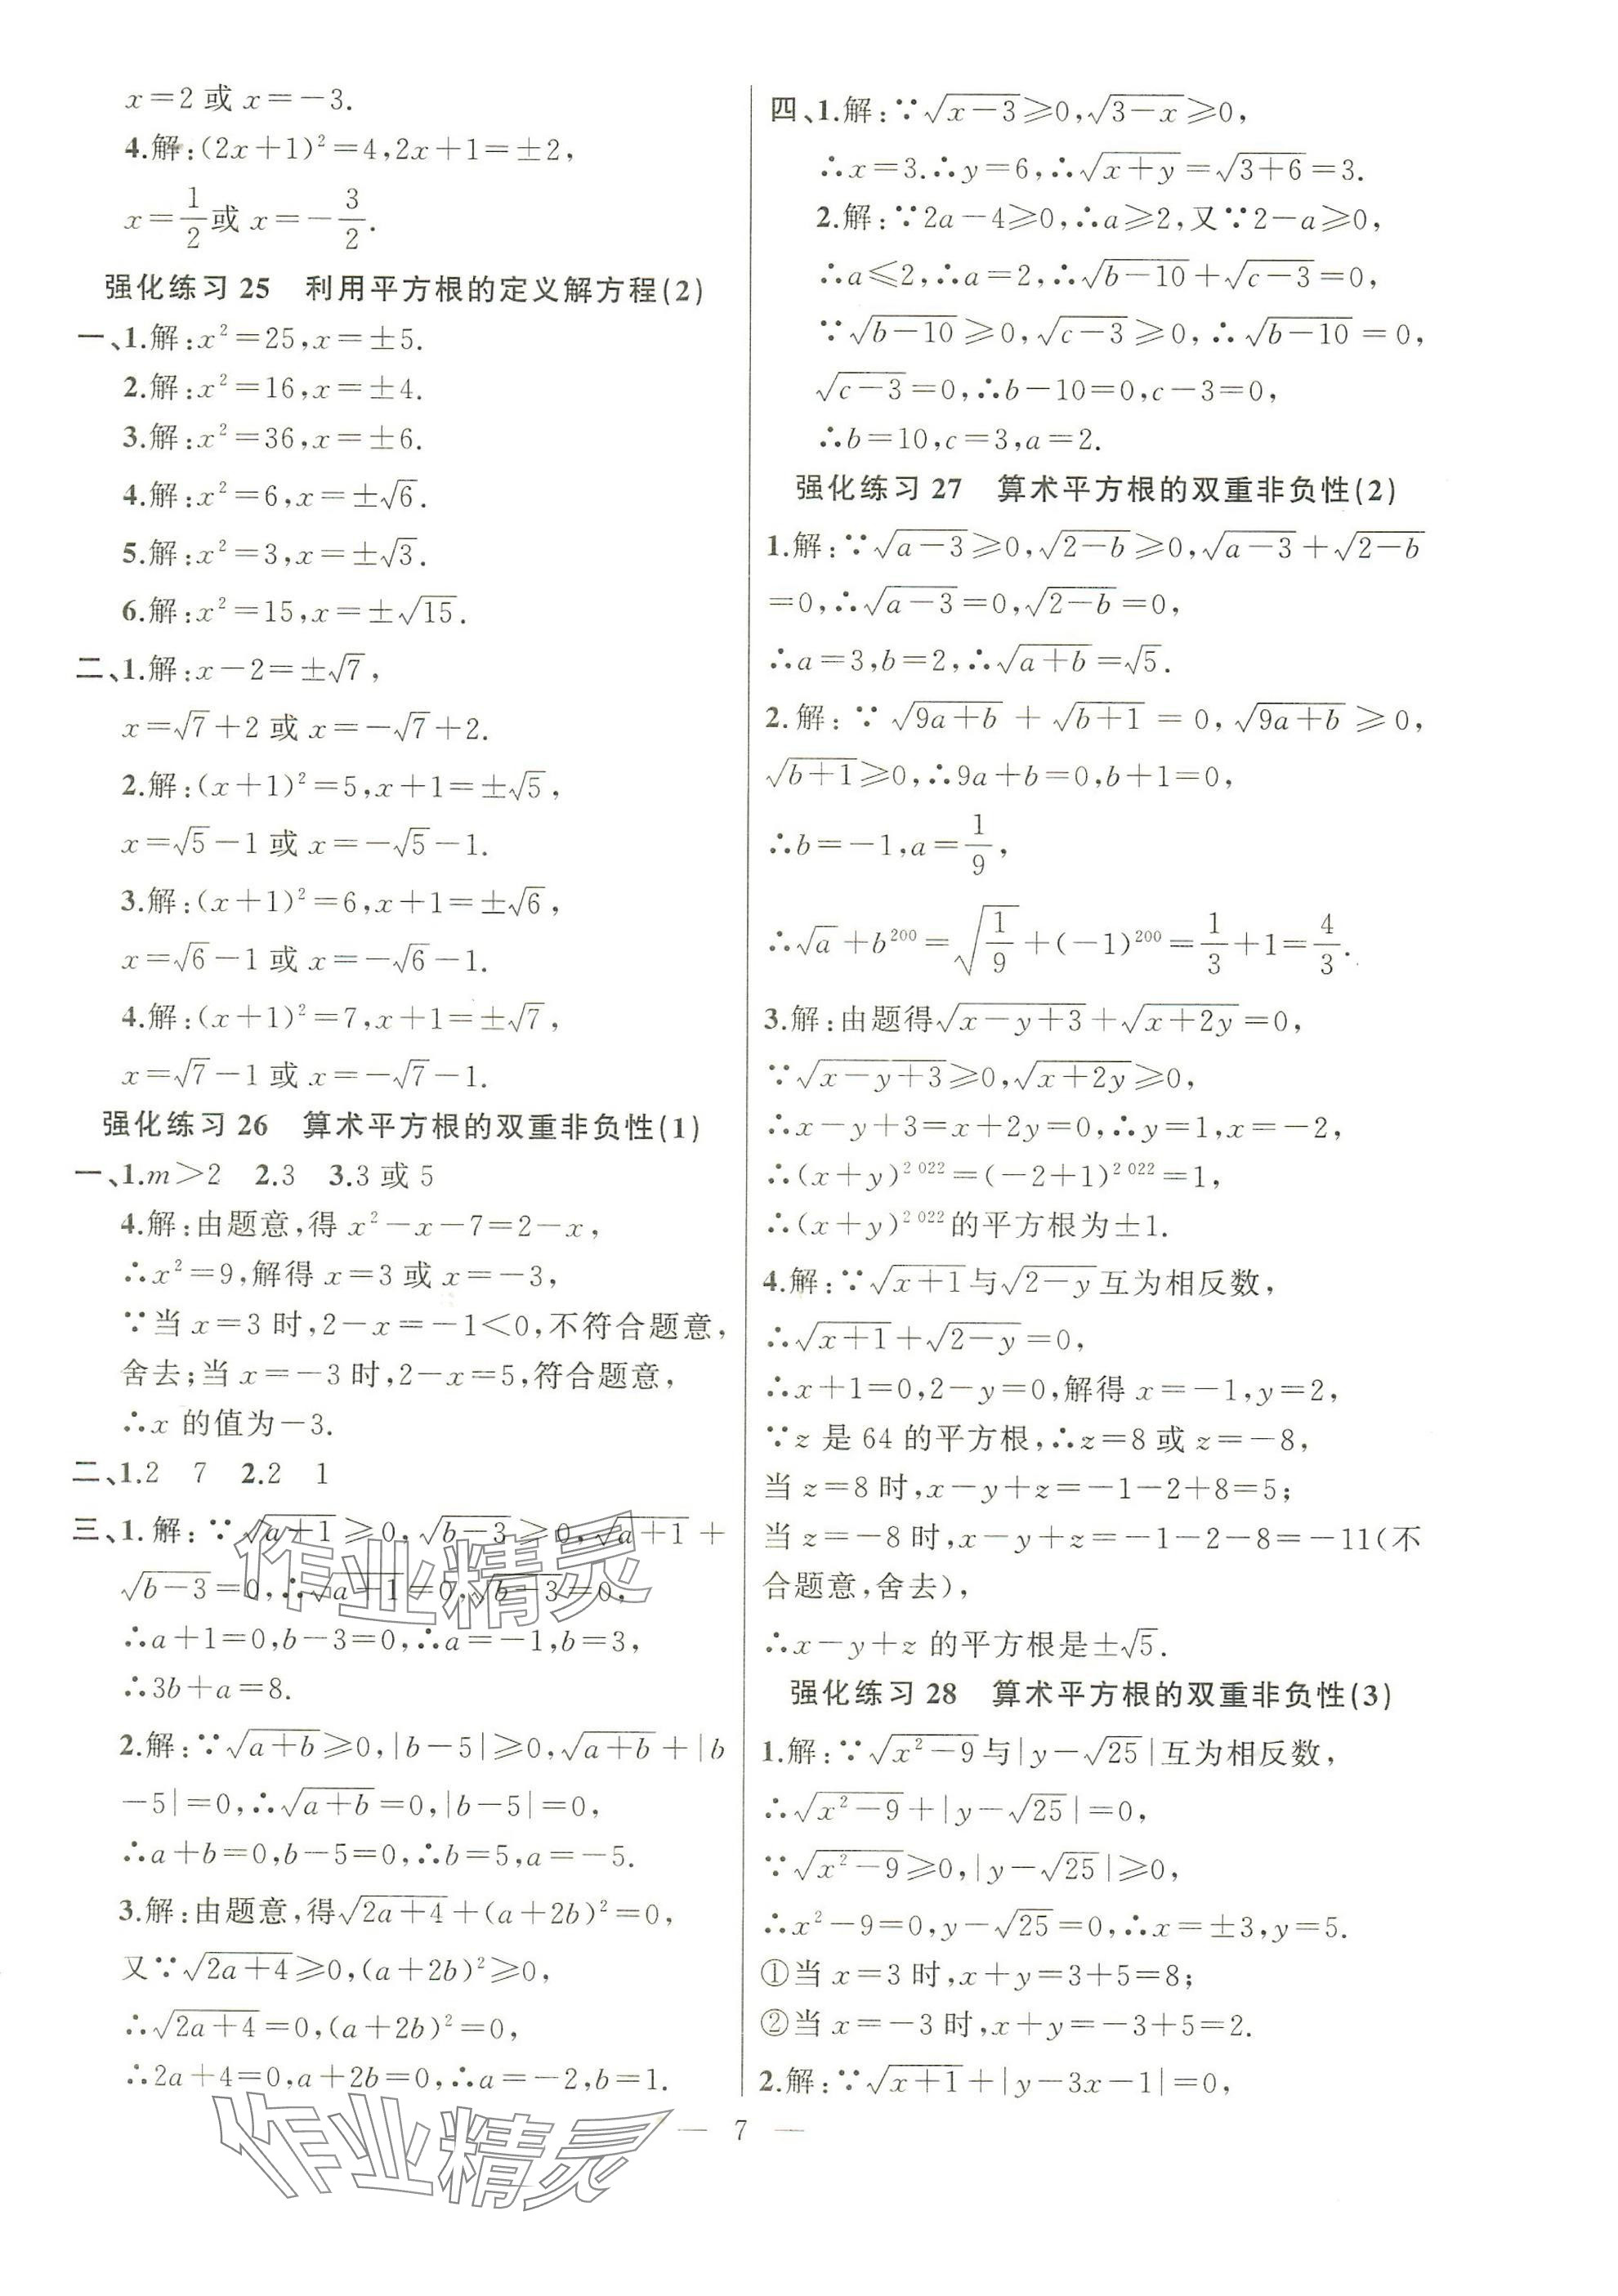 x=2 或 x=-3.
4.解:(2x+1)²=4,2x+1=±2,
x=1/2 或 x=-3/2.
强化练习 25 利用平方根的定义解方程(2)
一、1.解:x²=25,x=±5.
2.解:x²=16,x=±4.
3.解:x²=36,x=±6.
4.解:x²=6,x=±√6.
5.解:x²=3,x=±√3.
6.解:x²=15,x=±√15.
二、1.解:x-2=±√7,
x=√7+2 或 x=-√7+2.
2.解:(x+1)²=5,x+1=±√5,
x=√5-1 或 x=-√5-1.
3.解:(x+1)²=6,x+1=±√6,
x=√6-1 或 x=-√6-1.
4.解:(x+1)²=7,x+1=±√7,
x=√7-1 或 x=-√7-1.
强化练习 26 算术平方根的双重非负性(1)
一、1.m>2 2.3 3.3 或 5
4.解:由题意,得 x²-x-7=2-x,
∴x²=9,解得 x=3 或 x=-3,
∵当 x=3 时,2-x=-1<0,不符合题意,
舍去;当 x=-3 时,2-x=5,符合题意,
∴x 的值为-3.
二、1.2 7 2.2 1
三、1.解:∵√(a+1)≥0,√(b-3)≥0,√(a+1)+
√(b-3)=0,∴√(a+1)=0,√(b-3)=0,
∴a+1=0,b-3=0,∴a=-1,b=3,
∴3b+a=8.
2.解:∵√(a+b)≥0,|b-5|≥0,√(a+b)+|b
-5|=0,∴√(a+b)=0,|b-5|=0,
∴a+b=0,b-5=0,∴b=5,a=-5.
3.解:由题意,得√(2a+4)+(a+2b)²=0,
又∵√(2a+4)≥0,(a+2b)²≥0,
∴√(2a+4)=0,(a+2b)²=0,
∴2a+4=0,a+2b=0,∴a=-2,b=1.
四、1.解:∵√(x-3)≥0,√(3-x)≥0,
∴x=3.∴y=6,∴√(x+y)=√(3+6)=3.
2.解:∵2a-4≥0,∴a≥2,又∵2-a≥0,
∴a≤2,∴a=2,∴√(b-10)+√(c-3)=0,
∵√(b-10)≥0,√(c-3)≥0,∴√(b-10)=0,
√(c-3)=0,∴b-10=0,c-3=0,
∴b=10,c=3,a=2.
强化练习 27 算术平方根的双重非负性(2)
1.解:∵√(a-3)≥0,√(2-b)≥0,√(a-3)+√(2-b)
=0,∴√(a-3)=0,√(2-b)=0,
∴a=3,b=2,∴√(a+b)=√5.
2.解:∵√(9a+b)+√(b+1)=0,√(9a+b)≥0,
√(b+1)≥0,∴9a+b=0,b+1=0,
∴b=-1,a=1/9,
∴√a+b²⁰⁰=√(1/9)+(-1)²⁰⁰=1/3+1=4/3.
3.解:由题得√(x-y+3)+√(x+2y)=0,
∵√(x-y+3)≥0,√(x+2y)≥0,
∴x-y+3=x+2y=0,∴y=1,x=-2,
∴(x+y)²⁰²²=(-2+1)²⁰²²=1,
∴(x+y)²⁰²²的平方根为±1.
4.解:∵√(x+1)与√(2-y)互为相反数,
∴√(x+1)+√(2-y)=0,
∴x+1=0,2-y=0,解得 x=-1,y=2,
∵z 是 64 的平方根,∴z=8 或 z=-8,
当 z=8 时,x-y+z=-1-2+8=5;
当 z=-8 时,x-y+z=-1-2-8=-11(不
合题意,舍去),
∴x-y+z 的平方根是±√5.
强化练习 28 算术平方根的双重非负性(3)
1.解:∵√(x²-9)与|y-√25|互为相反数,
∴√(x²-9)+|y-√25|=0,
∵√(x²-9)≥0,|y-√25|≥0,
∴x²-9=0,y-√25=0,∴x=±3,y=5.
①当 x=3 时,x+y=3+5=8;
②当 x=-3 时,x+y=-3+5=2.
2.解:∵√(x+1)+|y-3x-1|=0,
— 7 —
作业精灵
作业精灵